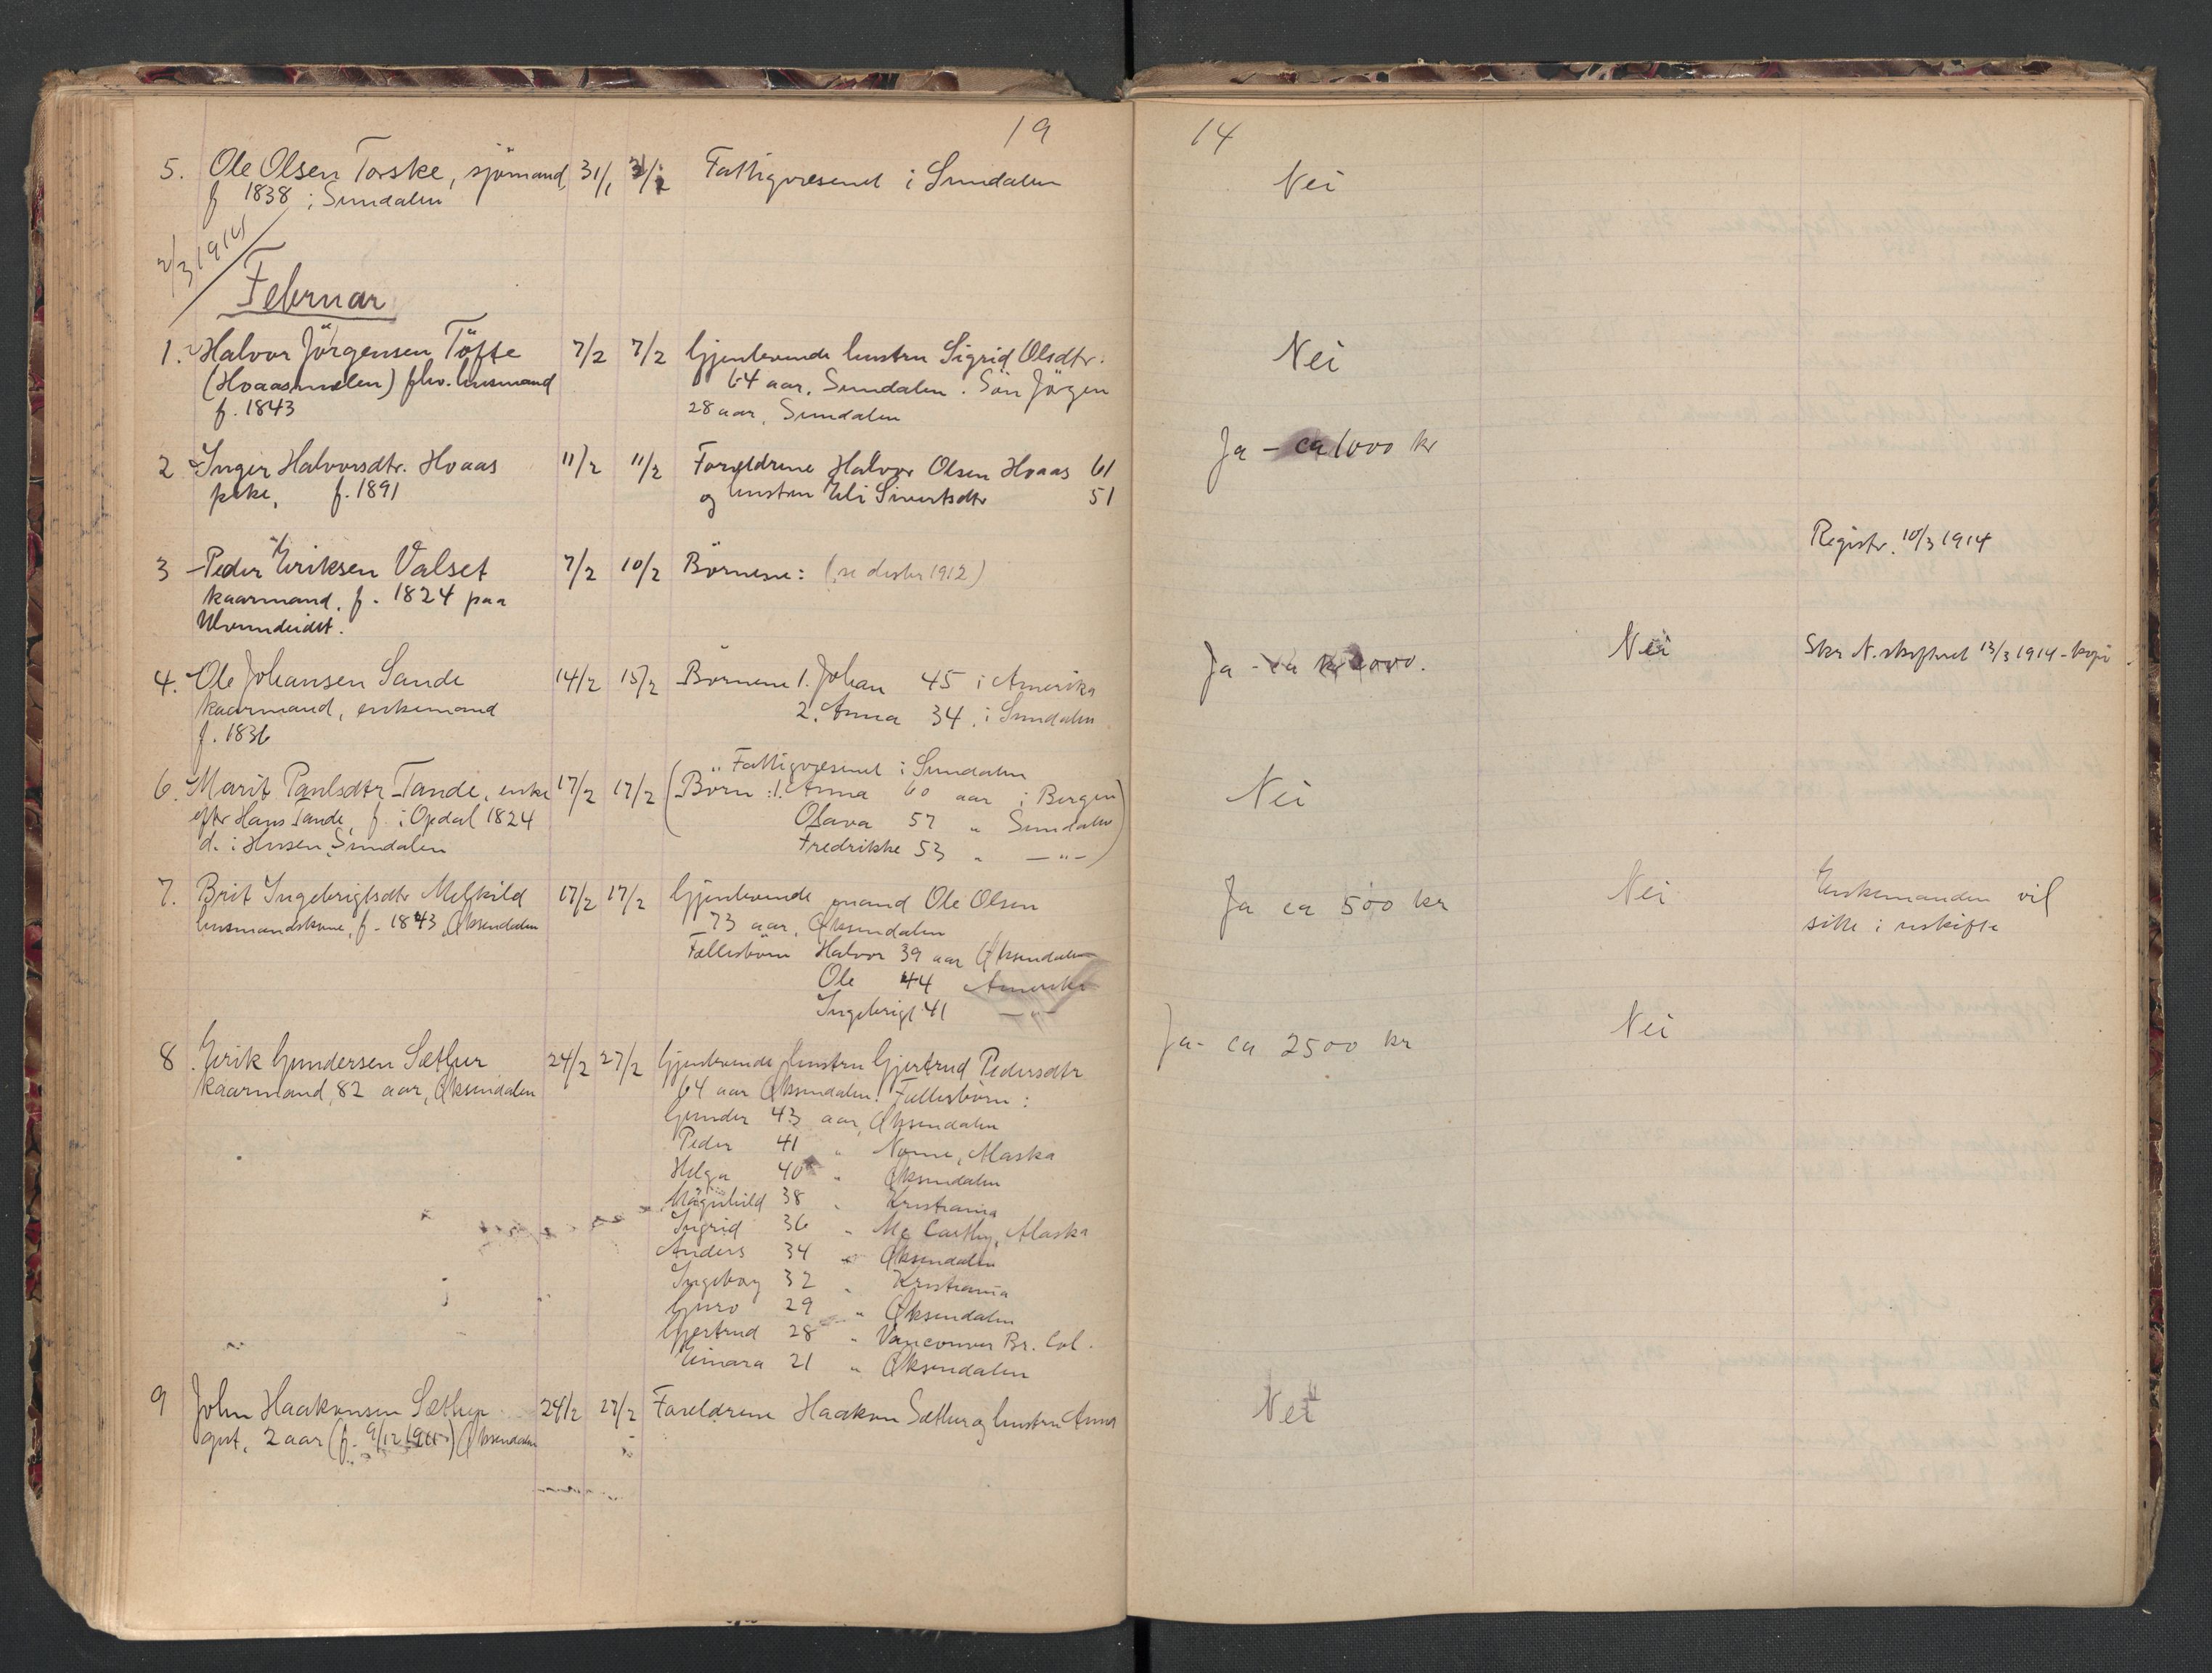 19
5. Ole Olsen Torske, sjömand, 31/1 Fattigvæsenet i Sundalen
f 1838 i Sundalen
2/3 1914
Februar
1. Halvor Jörgensen Töfte 7/2 7/2 Gjenlevende hustru Sigrid Olsdtr.
(Hoaasmælen) fhv. husmand 64 aar, Sundalen. Sön Jörgen
f. 1843 28 aar, Sundalen
2 Inger Halvorsdtr. Hoaas 11/2 11/2 Forældrene Halvor Olsen Hoaas 61
pike, f. 1891 og hustru Eli Sivertsdtr 51
3 Peder Eriksen Valset 7/2 10/2 Börnene: (se 1912)
kaarmand, f. 1824 paa
4. Ole Johansen Sande 14/2 15/2 Börnene 1. Johan 45 i Amerika
kaarmand, enkemand 2. Anna 34 i Sundalen
f. 1836
" Fattigvæsenet i Sundalen
6. Marit Paulsdtr Tande, enke 17/2 17/2 (Börn: 1. Anna 60 aar i Bergen)
eftr Hans Tande, f. i Opdal 1824 Olava 57 " Sundalen)
d. i Husen, Sundalen Fredrikke 53 " —"—)
7. Brit Ingebrigtsdtr Melkild 17/2 17/2 Gjenlevende mand Ole Olsen
husmandskone, f. 1843, Øksendalen 73 aar, Øksendalen
Fællesbörn Halvor 39 aar Øksendalen
Ole 44 Amerika
Ingebrigt 41 —"—
8. Erik Gundersen Sæther 24/2 27/2 Gjenlevende hustru Gjertrud Pedersdtr
kaarmand, 82 aar, Øksendalen 64 aar Øksendalen. Fællesbörn:
Gunder 43 aar, Øksendalen
Peder 41 " Nome, Alaska
Helga 40 " Øksendalen
Magnhild 38 " Kristiania
Ingrid 36 " Mc Carthy, Alaska
Anders 34 " Øksendalen
Ingeborg 32 " Kristiania
Guro 29 " Øksendalen
Gjertrud 28 " Vancouver Br. Col.
Einara 21 " Øksendalen
9 John Haakonsen Sæther 24/2 27/2 Forældrene Haakon Sæther og hustru Anna
gut, 2 aar (f. 9/12 1911) Øksendalen
14
Nei
Nei
Ja - ca 1000 kr
Registr. 10/3 1914
Ja - ca kr 1000. Nei Skr N. skifteret 13/3 1914 - kopi
Nei
Ja ca 500 kr Nei Enkemanden vil
sitte i uskifte
Ja - ca 2500 kr Nei
Nei